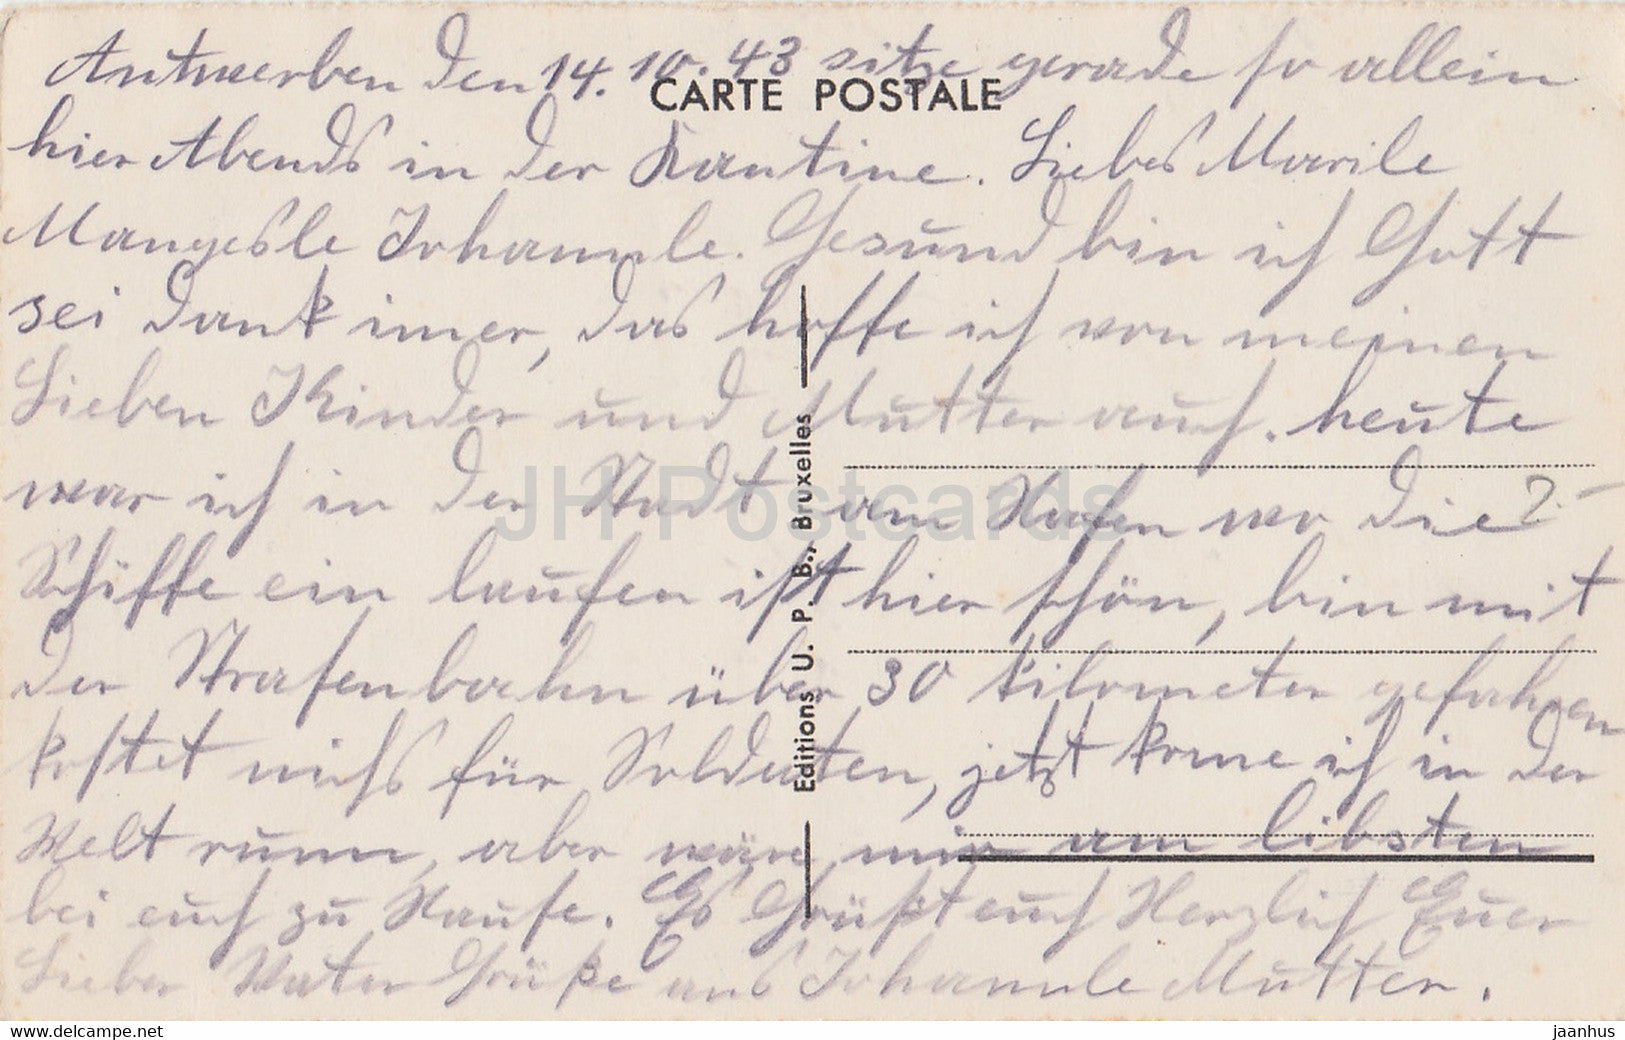 Antwerben den 14.10.43 sitze gerade so allein
CARTE POSTALE
hier Abends in der Kantine. Liebes Marile
Mangesle Johannle. Gesund bin ich Gott
sei Dank imer, das hoffe ich von meinen
Lieben Kinder und Mutter auch. heute
war ich in der Stadt am Hafen wo die
2.-
Schiffe ein laufen ist hier schön, bin mit
der Strasenbahn über 30 kilometer gefahren
kostet nichs für Soldaten, jetzt kome ich in der
Welt rum, aber wäre mir am libsten
bei euch zu Hause. Es Grüßt euch Herzlich Euer
Lieber Vater Grüße ans Johannle Mutter.
Editions U. P. B., Bruxelles
JH Postcards
www.delcampe.net
jaanhus